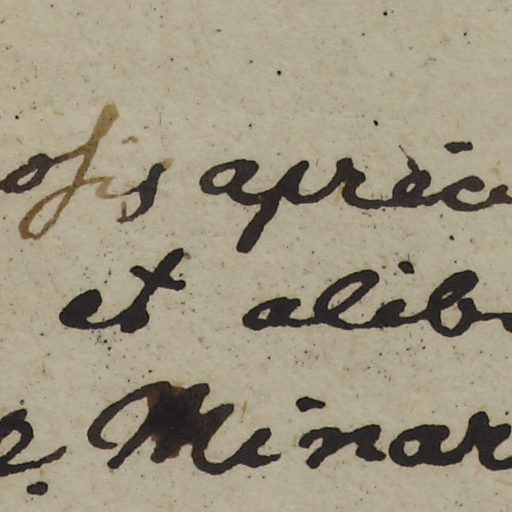 osis apric
et alib
Minar